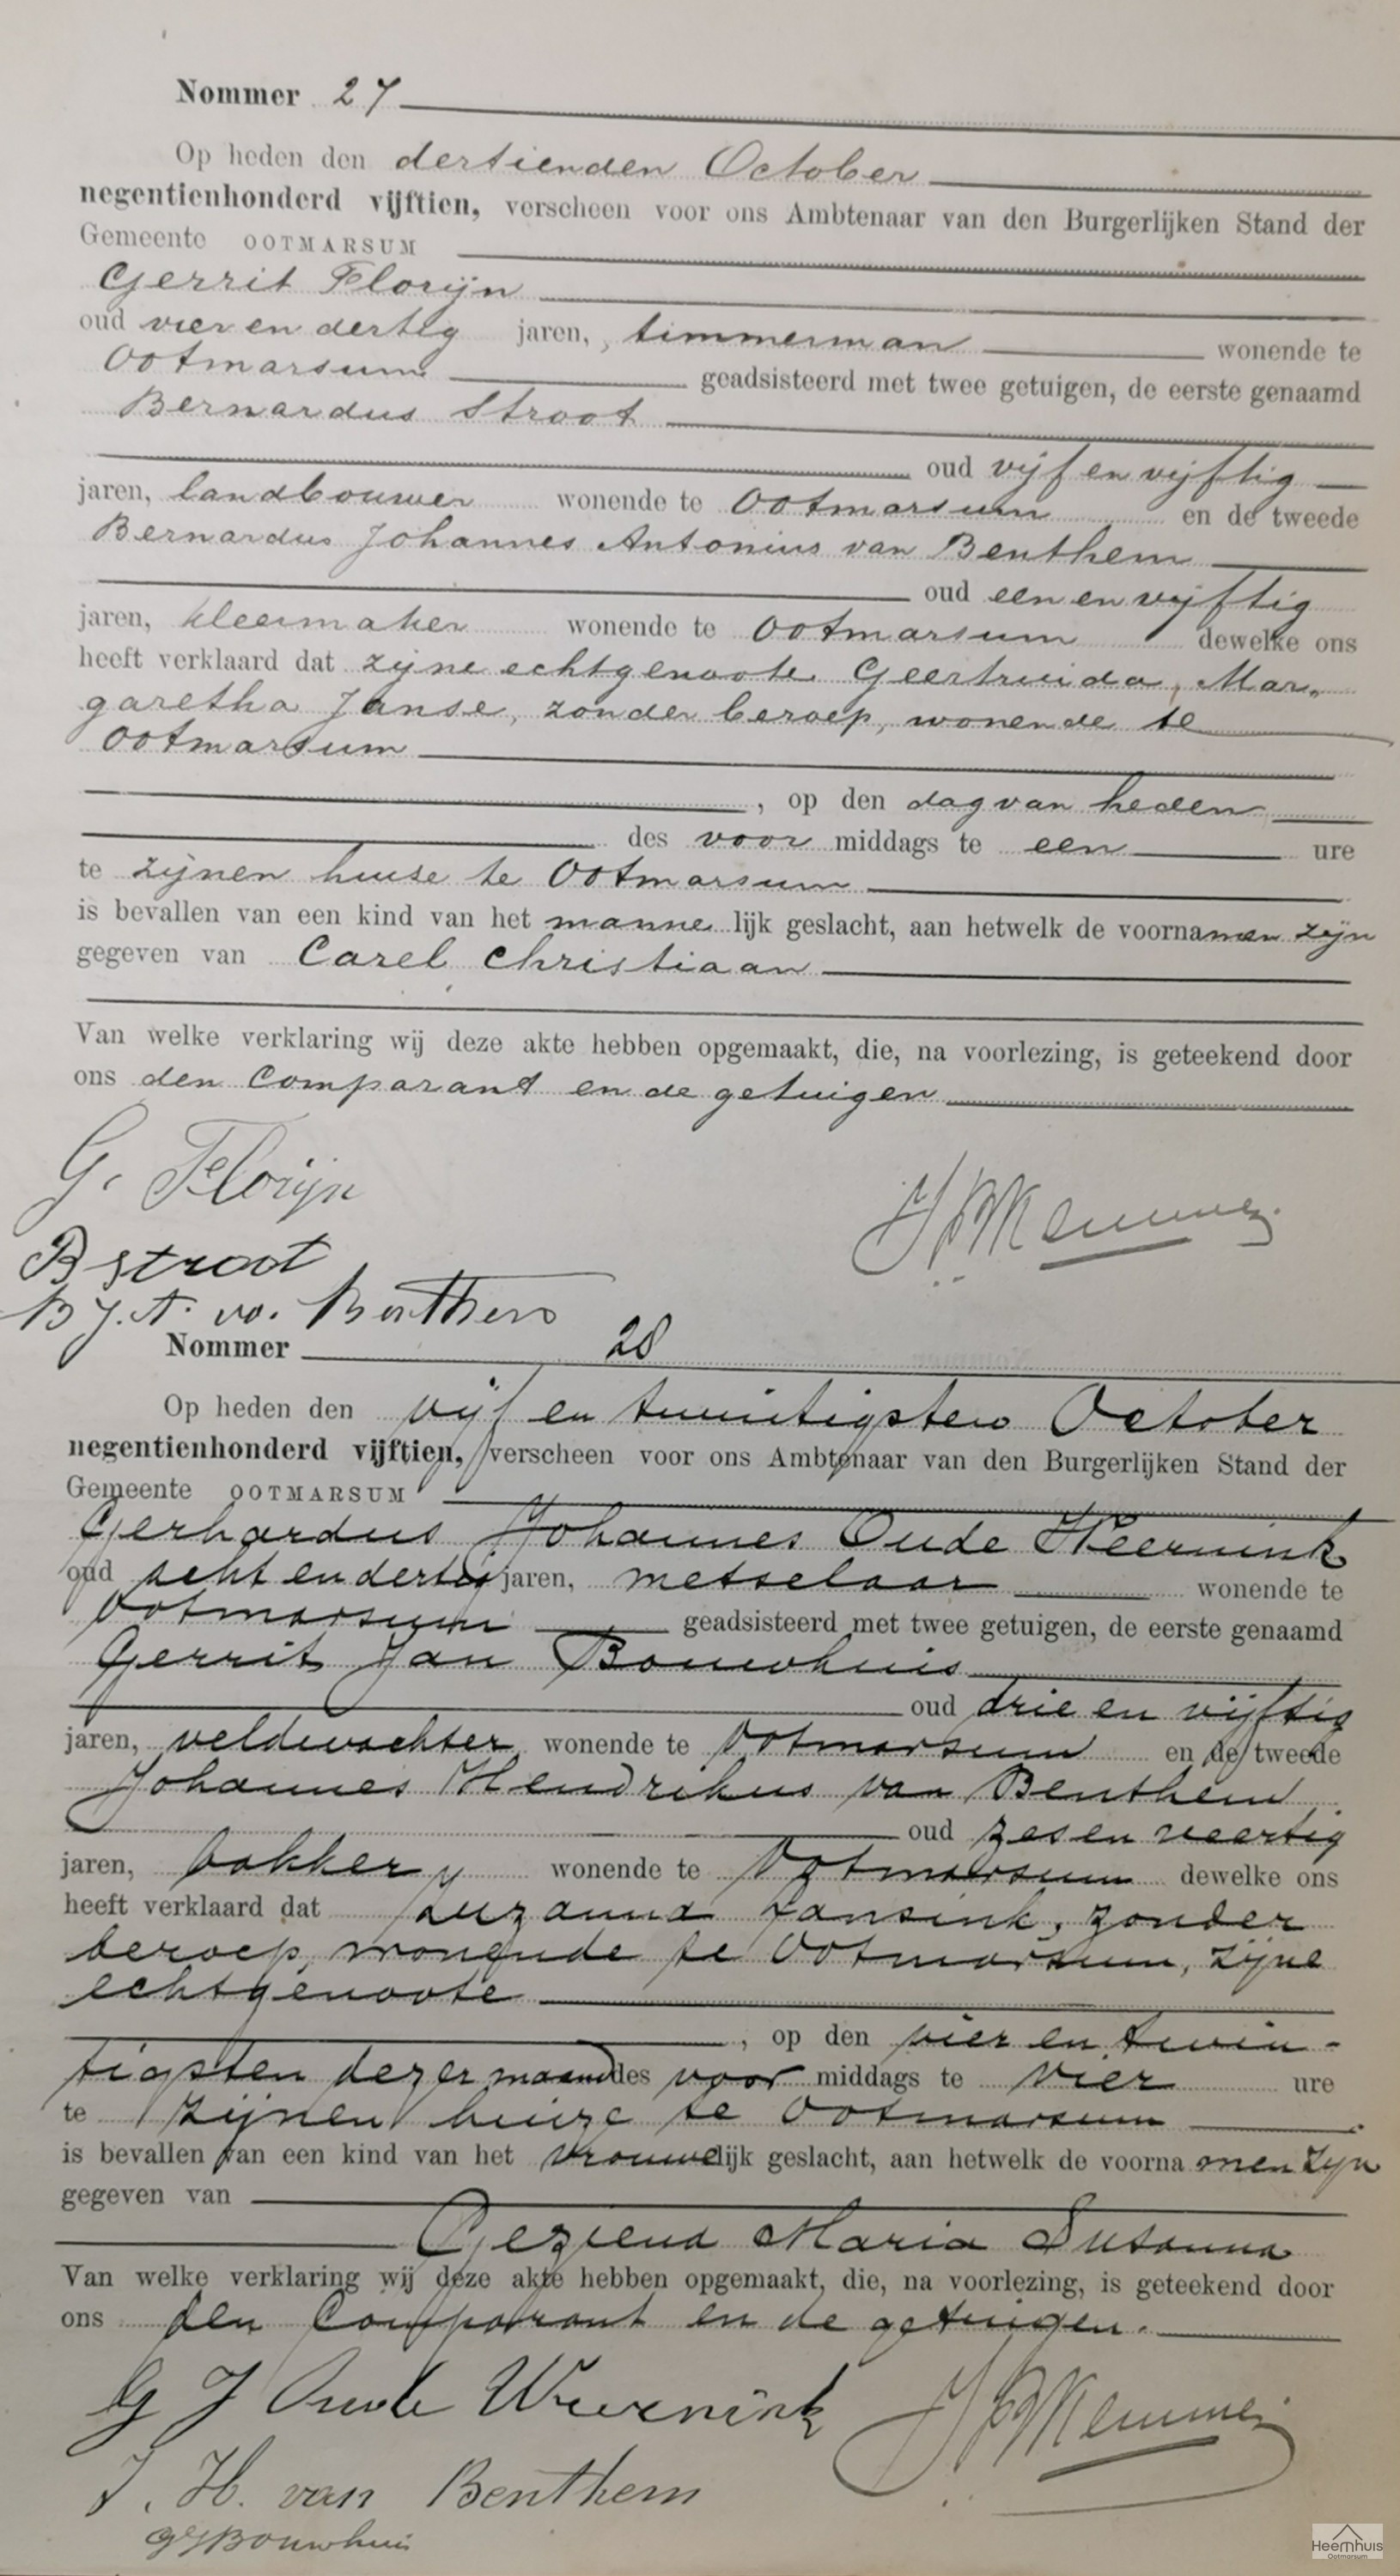 Nommer 27
Op heden den dertienden October
negentienhonderd vijftien, verscheen voor ons Ambtenaar van den Burgerlijken Stand der
Gemeente OOTMARSUM
Gerrit Florijn
oud vier en dertig jaren, timmerman wonende te
Ootmarsum geadsisteerd met twee getuigen, de eerste genaamd
Bernardus Stroot
oud vijf en vijftig
jaren, landbouwer wonende te Ootmarsum en de tweede
Bernardus Johannes Antonius van Benthem
oud een en vijftig
jaren, kleermaker wonende te Ootmarsum dewelke ons
heeft verklaard dat zijne echtgenoote Geertruida, Mar„
garetha Janse, zonder beroep, wonende te
Ootmarsum
, op den dag van heden
des voor middags te een ure
te zijnen huise te Ootmarsum
is bevallen van een kind van het mannelijk geslacht, aan hetwelk de voornamen zijn
gegeven van Carel Christiaan
Van welke verklaring wij deze akte hebben opgemaakt, die, na voorlezing, is geteekend door
ons den Comparant en de getuigen
G. Florijn
B Stroot
B J. A. v. Benthem
Nommer 28
Op heden den vijf en twintigsten October
negentienhonderd vijftien, verscheen voor ons Ambtenaar van den Burgerlijken Stand der
Gemeente OOTMARSUM
Gerhardus Johannes Oude Weernink
oud acht en dertig jaren, metselaar wonende te
Ootmarsum geadsisteerd met twee getuigen, de eerste genaamd
Gerrit Jan Bouwhuis
oud drie en vijftig
jaren, veldwachter wonende te Ootmarsum en de tweede
Johannes Hendrikus van Benthem
oud zes en veertig
jaren, bakker wonende te Ootmarsum dewelke ons
heeft verklaard dat Suzanna Jansink, zonder
beroep, wonende te Ootmarsum, zijne
echtgenoote
, op den vier en twin-
tigsten dezer maand des voor middags te vier ure
te zijnen huize te Ootmarsum
is bevallen van een kind van het vrouwelijk geslacht, aan hetwelk de voornamen zijn
gegeven van
Geziena Maria Susanna
Van welke verklaring wij deze akte hebben opgemaakt, die, na voorlezing, is geteekend door
ons den Comparant en de getuigen.
G J Oude Weernink
J. H. van Benthem
GJ Bouwhuis
Heemhuis
Ootmarsum